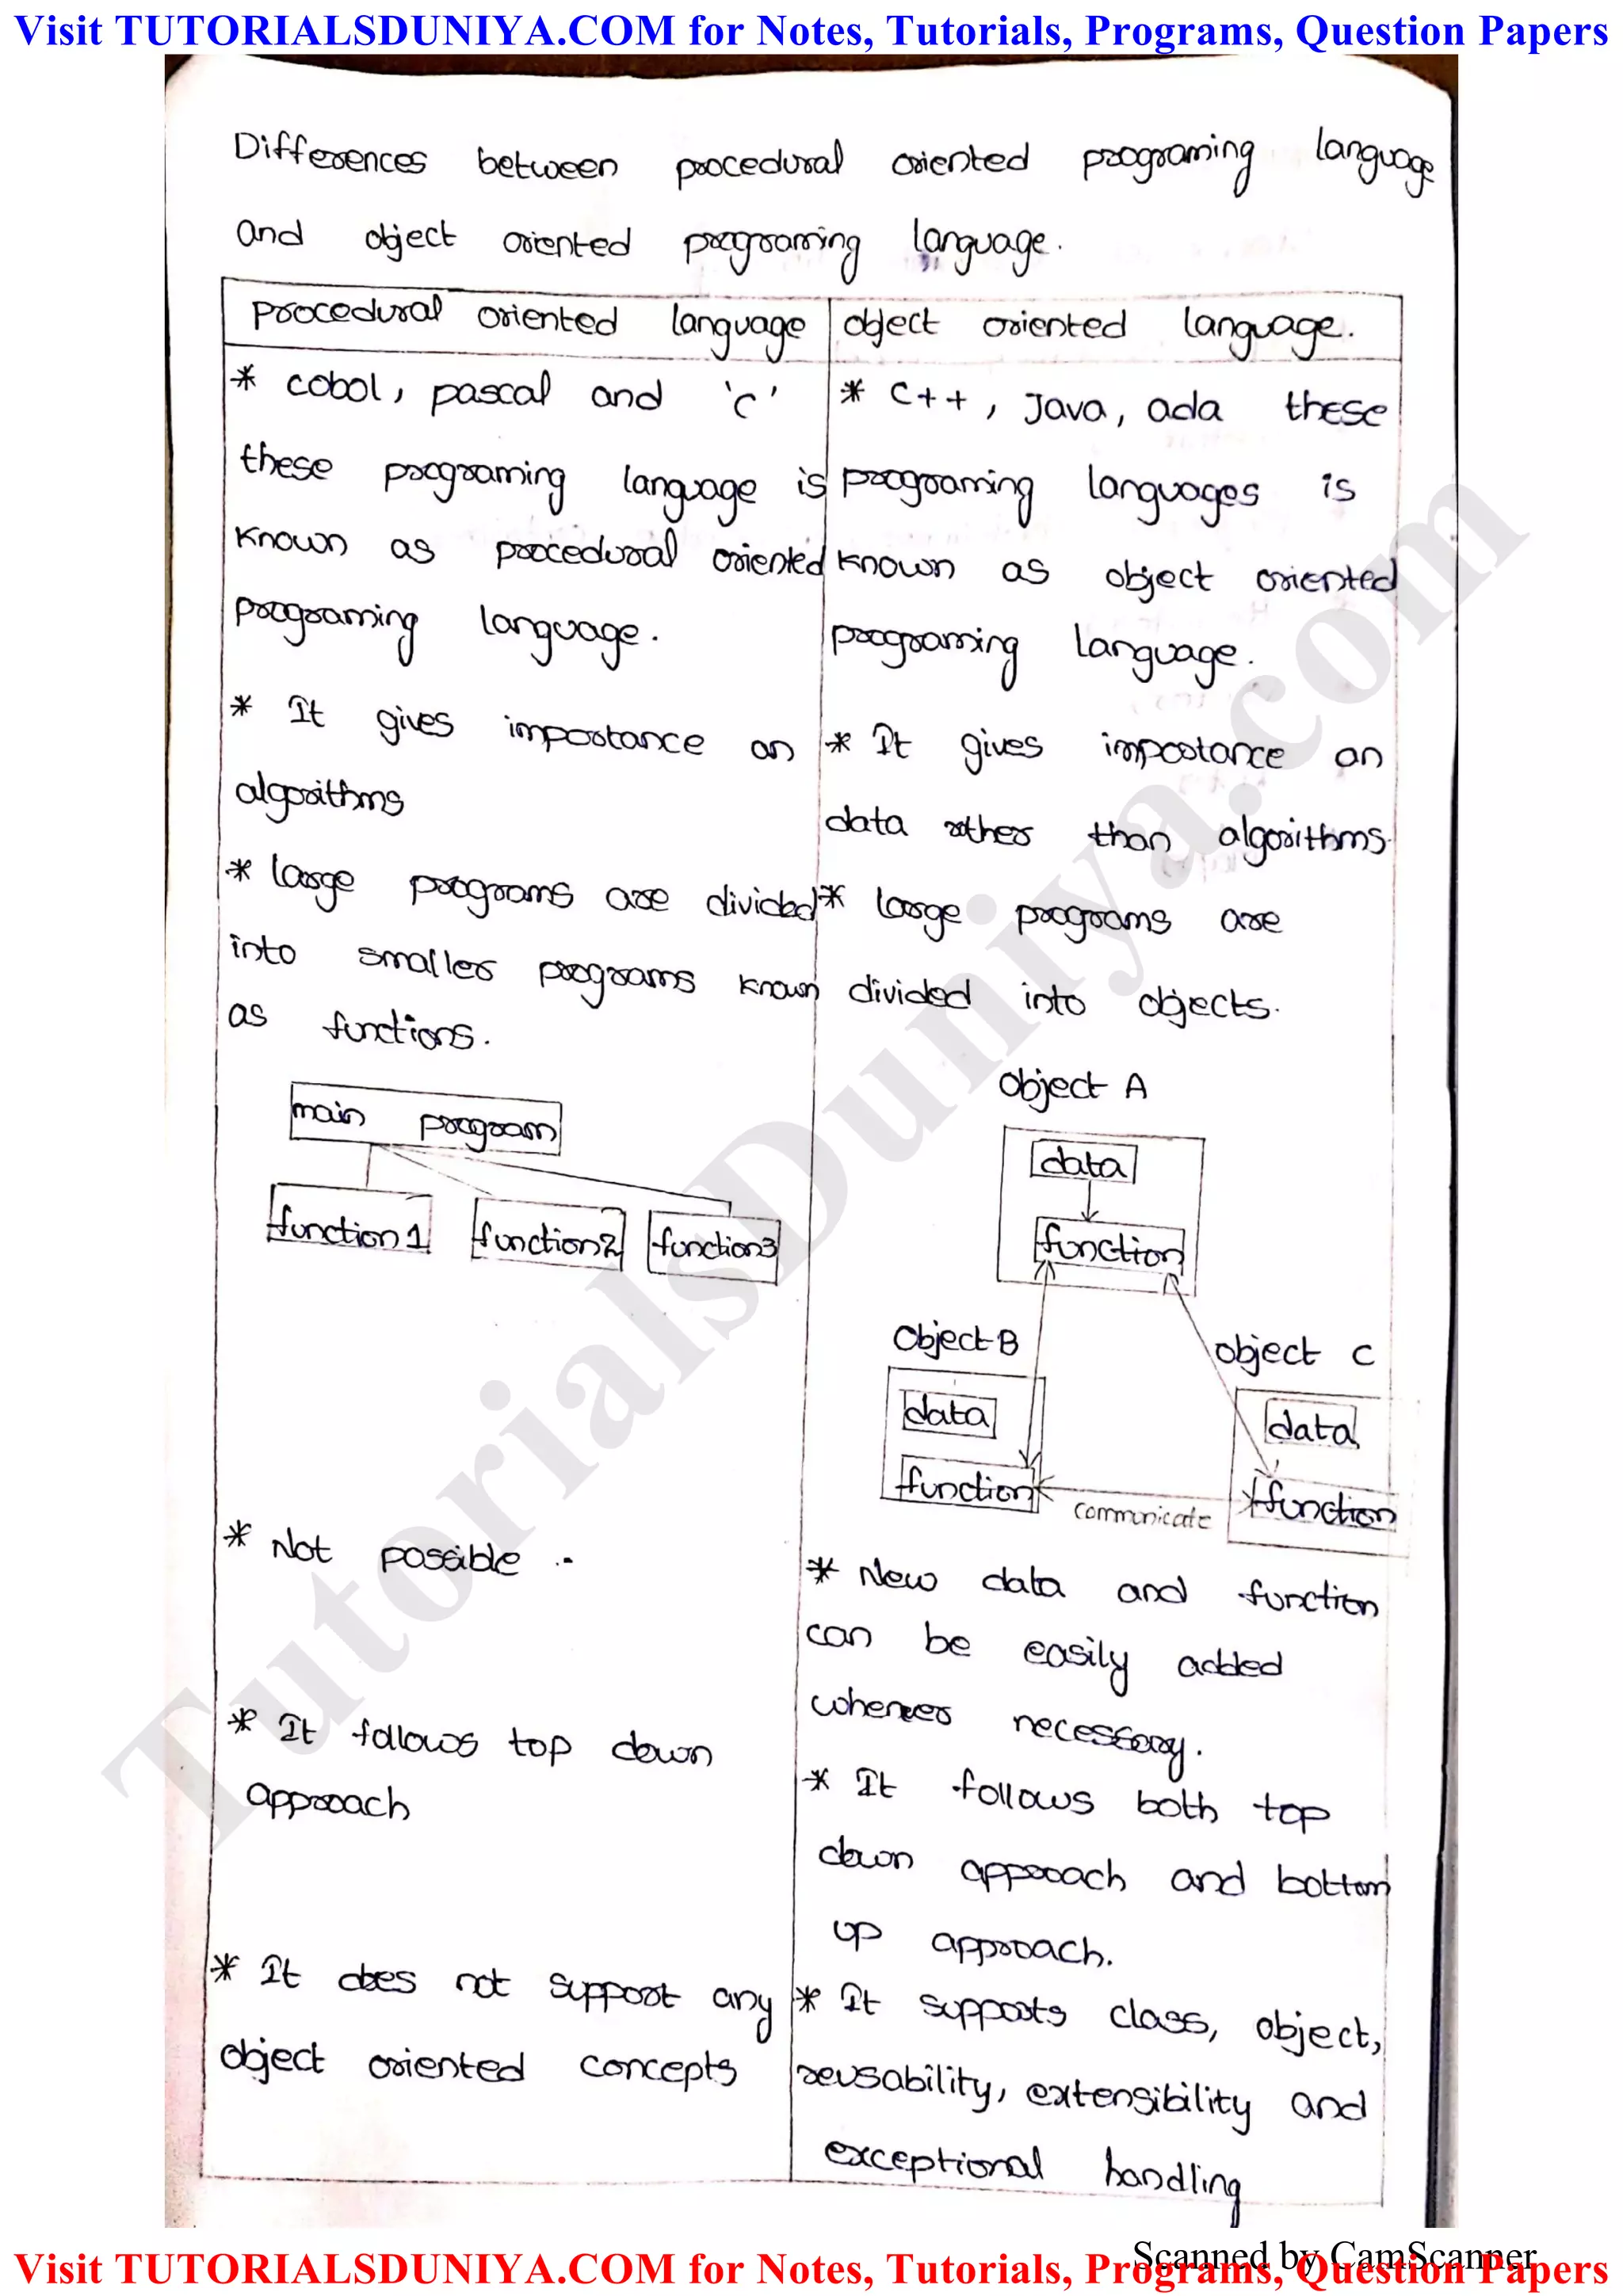 Visit TUTORIALSDUNIYA.COM for Notes, Tutorials, Programs, Question Papers
Differences between procedural oriented programing language
and object oriented programing language.
procedural oriented language
* cobol, pascal and 'c'
these programing language is
known as procedural oriented
programing language.
* It gives importance on
algorithms
* large programs are divided
into smaller programs known
as functions.
main program
function 1 function2 function3
* Not possible :-
* It follows top down
approach
* It does not support any
object oriented concepts
object oriented language.
* C++, Java, ada these
programing languages is
known as object oriented
programing language.
* It gives importance on
data rather than algorithms.
* large programs are
divided into objects.
object A
data
function
Object B
data
function
object C
data
function
communicate
* New data and function
can be easily added
whenever necessary.
* It follows both top
down approach and bottom
up approach.
* It supports class, object,
reusability, extensibility and
exceptional handling
TutorialsDuniya.com
Scanned by CamScanner
Visit TUTORIALSDUNIYA.COM for Notes, Tutorials, Programs, Question Papers